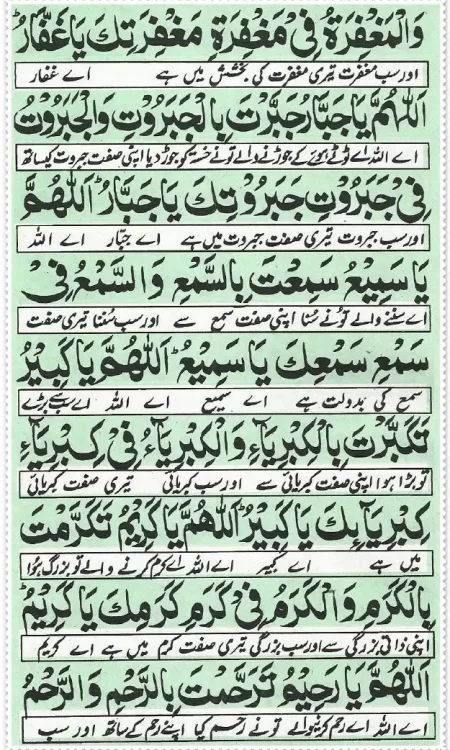 وَالْمَغْفِرَةُ فِيْ مَغْفِرَةِ مَغْفِرَتِكَ يَاغَفَّارُ
اور سب مغفرت تیری مغفرت کی بخشش میں ہے اے غفار
اَللّٰهُمَّ يَاجَبَّارُ جَبَّرْتَ بِالْجَبَرُوْتِ وَالْجَبَرُوْتُ
اے اللہ اے ٹوٹے ہوئے کے جوڑنے والے تو نے خستہ کو جوڑ دیا اپنی صفت جبروت کیساتھ
فِيْ جَبَرُوْتِ جَبَرُوْتِكَ يَاجَبَّارُ اَللّٰهُمَّ
اور سب جبروت تیری صفت جبروت میں ہے اے جبّار اے اللہ
يَاسَمِيْعُ سَمِعْتَ بِالسَّمْعِ وَالسَّمْعُ فِيْ
اے سننے والے تو نے سنا اپنی صفت سمع سے اور سب سننا تیری صفت
سَمْعِ سَمْعِكَ يَاسَمِيْعُ اَللّٰهُمَّ يَاكَبِيْرُ
سمع کی بدولت ہے اے سمیع اے اللہ اے سب سے بڑے
تَكَبَّرْتَ بِالْكِبْرِيَآءِ وَالْكِبْرِيَآءُ فِيْ كِبْرِيَآءِ
تو بڑا ہوا اپنی صفت کبریائی سے اور سب کبریائی تیری صفت کبریائی
كِبْرِيَآئِكَ يَاكَبِيْرُ اَللّٰهُمَّ يَاكَرِيْمُ تَكَرَّمْتَ
میں ہے اے کبیر اے اللہ اے کرم کرنے والے تو بزرگ ہوا
بِالْكَرَمِ وَالْكَرَمُ فِيْ كَرَمِ كَرَمِكَ يَاكَرِيْمُ
اپنی ذاتی بزرگی سے اور سب بزرگی تیری صفت کرم میں ہے اے کریم
اَللّٰهُمَّ يَارَحِيْمُ تَرَحَّمْتَ بِالرَّحْمِ وَالرَّحْمُ
اے اللہ اے رحم کرنیوالے تو نے رحم کیا اپنے رحم کے ساتھ اور سب